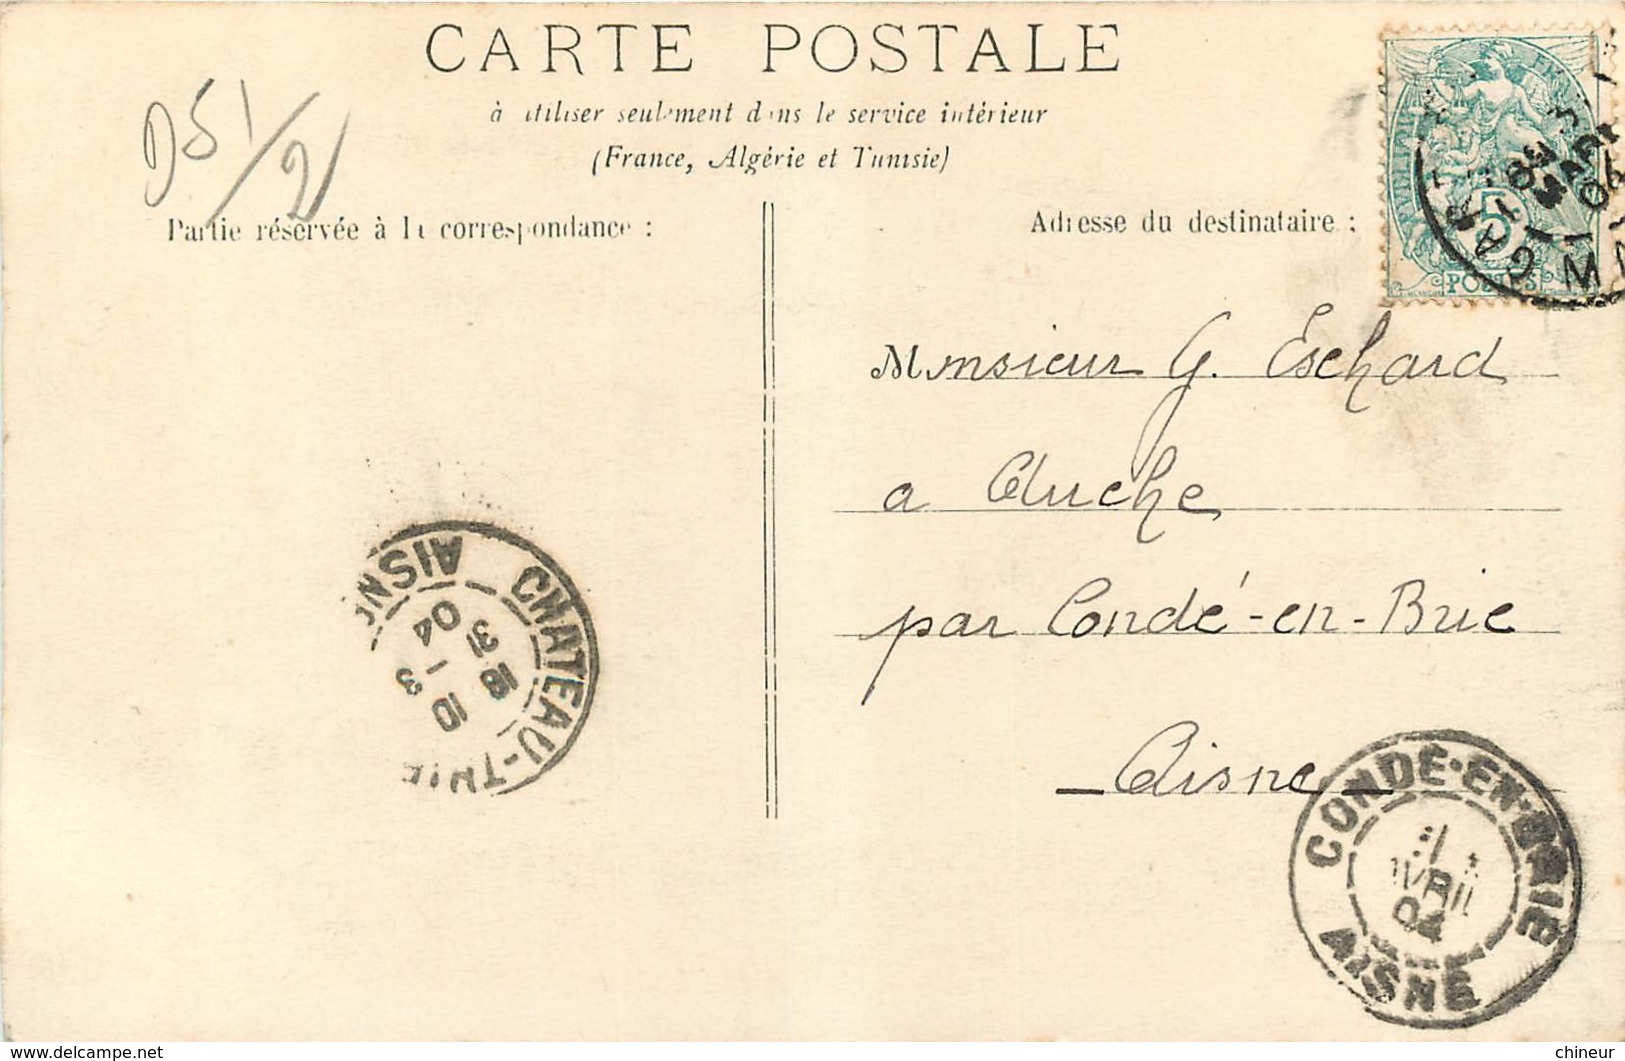 CARTE POSTALE
à utiliser seulement dans le service intérieur
(France, Algérie et Tunisie)
D51/2
Partie réservée à la correspondance :
Adresse du destinataire :
5
POSTES
MARS
04
Monsieur G. Eschard
a Cluche
par Condé-en-Brie
Aisne
CHATEAU-THIE
AISN
18 10
31 - 3
04
CONDÉ-EN-BRIE
AVRIL
04
AISNE
chineur